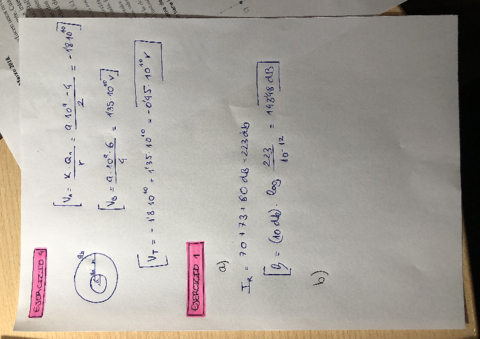 EJERCICIO 4
[V₁ = K·Q₁ / r = 9·10⁹·-4 / 2 = -1'8·10¹⁰]
[V₂ = 9·10⁹·6 / 4 = 1'35·10¹⁰ V]
[V_T = -1'8·10¹⁰ + 1'35·10¹⁰ = -0'45·10¹⁰ V]
EJERCICIO 1
a)
I_R = 70 + 73 + 80 dB = 223 db
[β = (10 db) · log 223 / 10⁻¹² = 143'48 dB]
b)